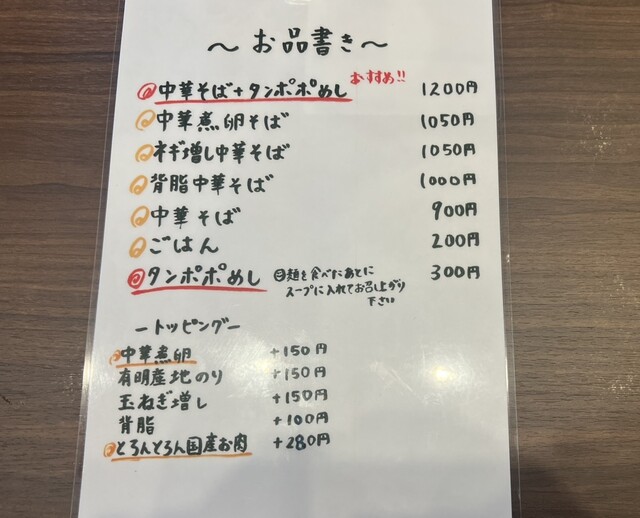 ～お品書き～
中華そば+タンポポめし おすすめ!! 1200円
中華煮卵そば 1050円
ネギ増し中華そば 1050円
背脂中華そば 1000円
中華そば 900円
ごはん 200円
タンポポめし 300円
麺を食べたあとに
スープに入れてお召し上がり
下さい
ートッピングー
中華煮卵 +150円
有明産地のり +150円
玉ねぎ増し +150円
背脂 +100円
とろんとろん国産お肉 +280円